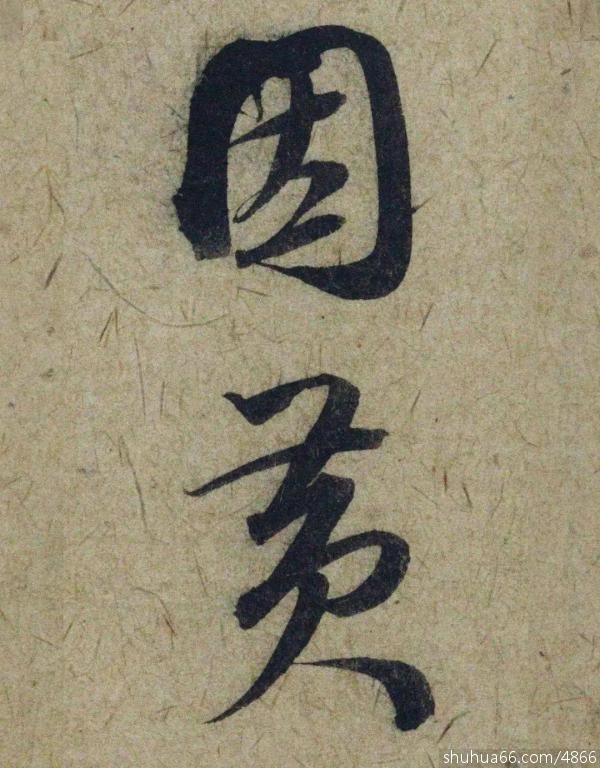 因
黄
shuhua66.com/4866